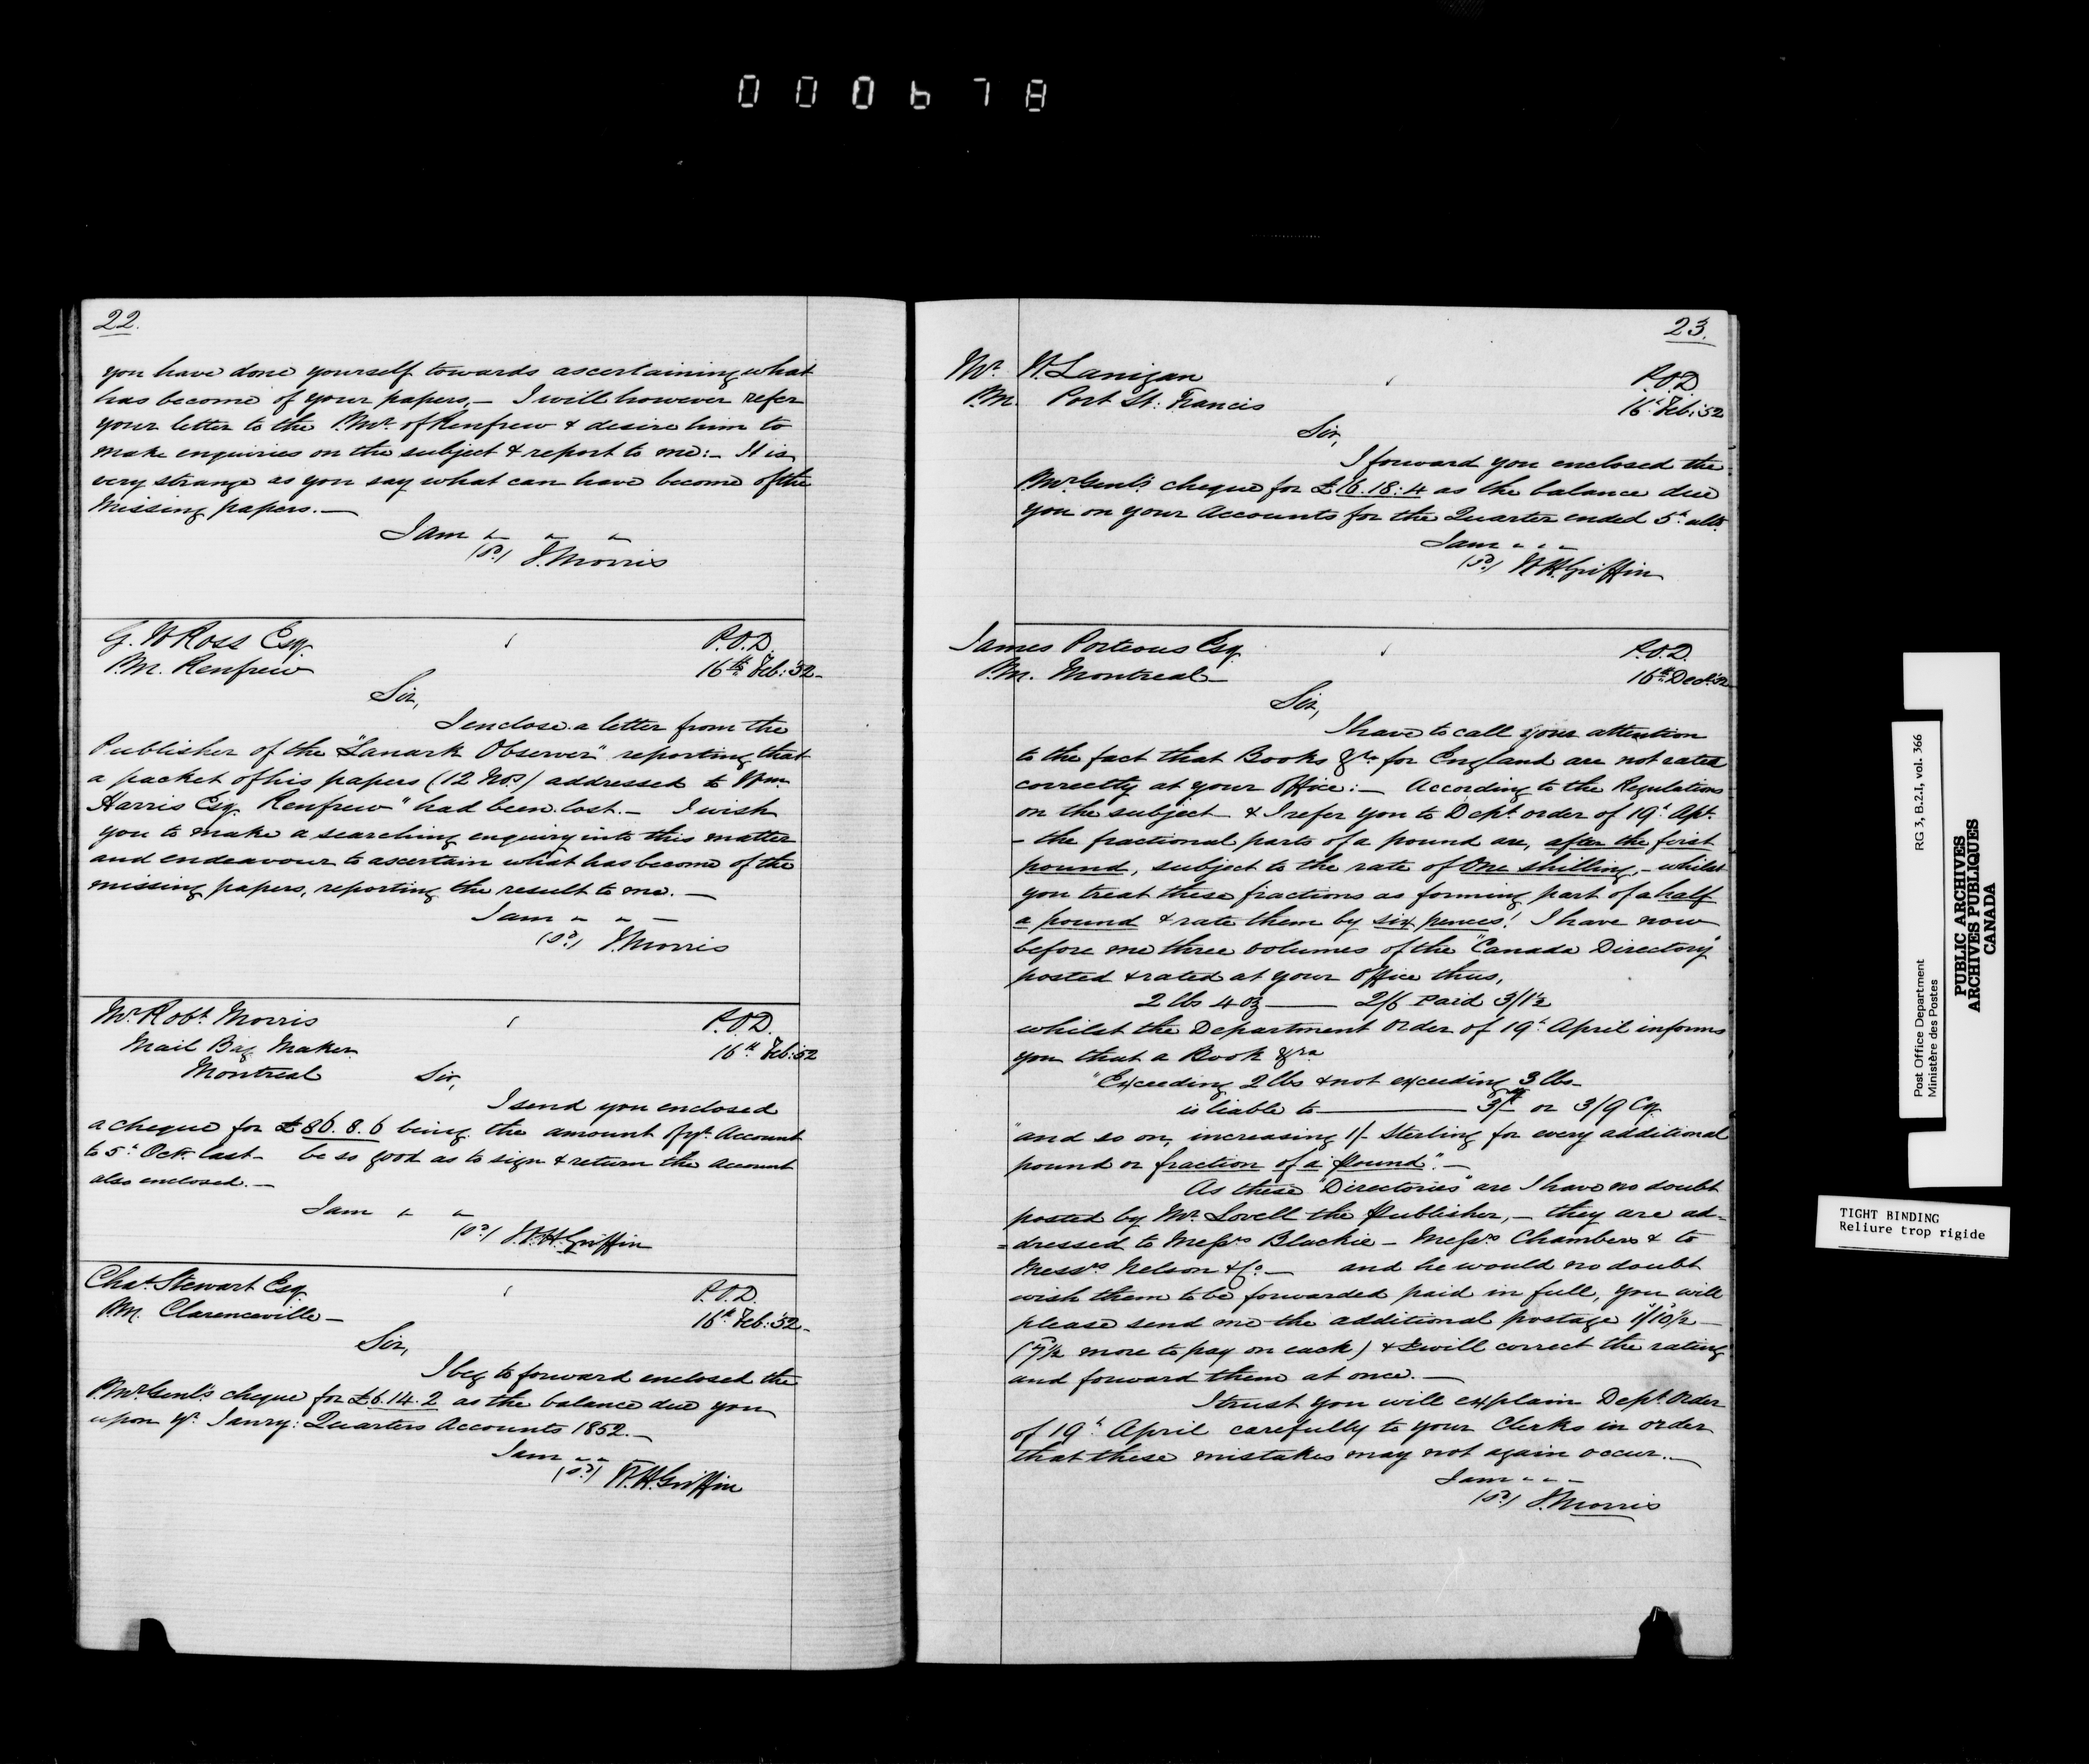 000678
22.
you have done yourself towards ascertaining what
has become of your papers,— I will however refer
your letter to the P.Mr. of Renfrew & desire him to
make enquiries on the subject & report to me:— It is
very strange as you say what can have become of the
missing papers.—
I am " " "
(sd.) J. Morris
G. W Ross Esq.
P.M. Renfrew
P.O.D.
16th Feb: 52-
Sir,
I enclose a letter from the
Publisher of the "Lanark Observer" reporting that
a packet of his papers (12 Nos) addressed to "Wm.
Harris Esq. Renfrew" had been lost.— I wish
you to make a searching enquiry into this matter
and endeavour to ascertain what has become of the
missing papers, reporting the result to me.—
I am " " —
(sd.) J. Morris
Mr. Robt. Morris
Mail Bag Maker
Montreal
P.O.D.
16th Feb: 52
Sir,
I send you enclosed
a cheque for £86.8.6 being the amount of yr. Account
to 5th Oct. last— be so good as to sign & return the account
also enclosed.—
I am " "
(sd.) W.H. Griffin
Chas. Stewart Esq.
P.M. Clarenceville—
P.O.D.
16th Feb: 52-
Sir,
I beg to forward enclosed the
P.Mr. Genl's. cheque for £6.14.2 as the balance due you
upon yr. Janry: Quarters Accounts 1852.—
I am " "
(sd.) W.H. Griffin
23.
Mr. W. Lanigan
P.M. Port St: Francis
P.O.D.
16th Feb: 52
Sir,
I forward you enclosed the
P.Mr. Genl's. cheque for £16.18:4 as the balance due
you on your Accounts for the Quarter ended 5th ulto.
I am " " "
(sd.) W.H. Griffin
James Porteous Esq.
P.M. Montreal—
P.O.D.
16th Dec: 52
Sir,
I have to call your attention
to the fact that Books &ca for England are not rated
correctly at your office:— According to the Regulations
on the subject & I refer you to Dept. order of 19th Apl.
— the fractional parts of a pound are, after the first
pound, subject to the rate of One shilling,— whilst
you treat these fractions as forming part of a half
a pound & rate them by six pences! I have now
before me three volumes of the "Canada Directory"
posted & rated at your Office thus,
2 lbs 4 oz —— 2/6 Paid 3/1½
whilst the Department Order of 19th April informs
you that a Book &ca
"Exceeding 2 lbs & not exceeding 3 lbs—
is liable to —— 3/- or 3/9 Cy.
"and so on, increasing 1/- Sterling for every additional
pound or fraction of a pound".—
As these "Directories" are I have no doubt
posted by Mr. Lovell the Publisher,— they are ad-
=dressed to Messrs Blackie — Messrs Chambers & to
Messrs Nelson & Co— and he would no doubt
wish them to be forwarded paid in full, you will
please send me the additional postage 1/10½—
(7½ more to pay on each) & I will correct the rating
and forward them at once.—
I trust you will explain Dept. Order
of 19th April carefully to your Clerks in order
that these mistakes may not again occur.—
I am " " "
(sd.) J. Morris
Post Office Department
Ministère des Postes
RG 3, B.2.I, vol. 366
PUBLIC ARCHIVES
ARCHIVES PUBLIQUES
CANADA
TIGHT BINDING
Reliure trop rigide